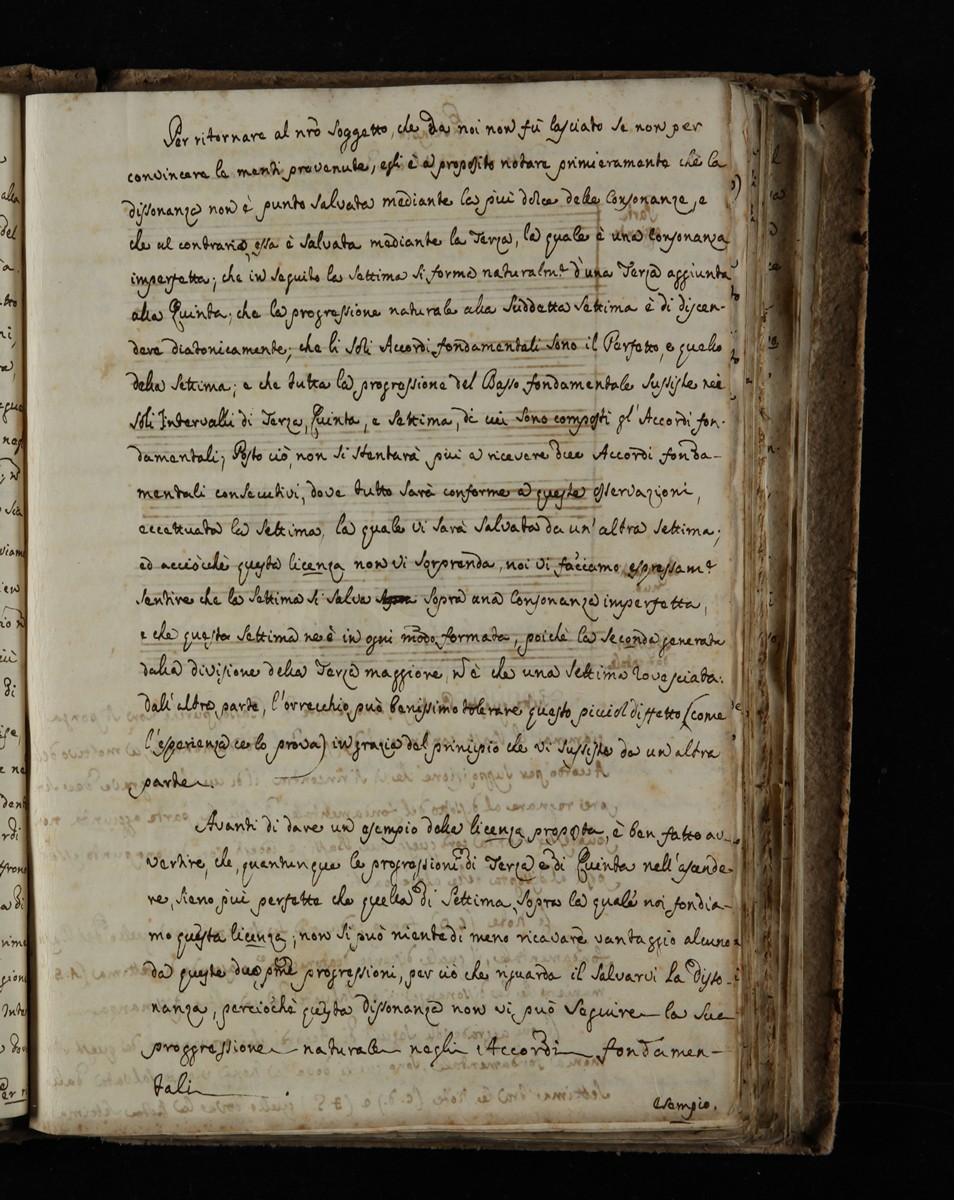 Per ritornare al nrõ Soggetto, che da noi non fù lasciato se non per
convincere le menti prevenute, egli è a proposito notare primieramente che la
dissonanza non è punto salvata mediante la più dolce delle Consonanze, e
che al contrario essa è salvata mediante la Terza, la quale è una Consonanza
imperfetta; che in seguito la Settima si forma naturalmte d'una Terza aggiunta
alla Quinta; che la progressione naturale alla suddetta Settima è di discen-
dere diatonicamente; che li soli Accordi fondamentali sono il Perfetto, e quello
della Settima; e che tutta la progressione del Basso fondamentale sussiste nei
soli Intervalli di Terza, Quinta, e Settima, di cui sono composti gl'Accordi fon-
damentali; Posto ciò, non si stentarà più a ricevere due Accordi fonda-
mentali consecutivi, dove tutto sarà conforme a queste osservazioni,
eccettuata la Settima, la quale vi sarà salvata da un'altra Settima;
ed acciòchè questa licenza non vi sorprenda, noi vi facciamo espressamte
sentire che la Settima si salva sopra una Consonanza imperfetta,
e che questa Settima ne è in ogni modo formata, poichè la Seconda generata
dalla divisione della Terza maggiore, n'è che una Settima rovesciata.
dall'altra parte, l'orrecchio può benissimo tolerare questo picciol diffetto (come
l'esperienza ce lo prova) in grazia del principio che vi sussiste da un altra
parte.
Avanti di dare un esempio della licenza proposta, è ben fatto av-
vertire, che, quantunque le progressioni di Terza e di Quinta nell'ascende-
re, sieno più perfette che quella di Settima, sopra la quale noi fondia-
mo questa licenza; non si può niente di meno ricavare vantaggio alcuno
da queste due pme progressioni, per ciò che riguarda il salvarvi la Disso-
nanza, perciochè questa Dissonanza non vi può seguire la sua
proggressione naturale negli Accordi fondamen-
tali.
Esempio.